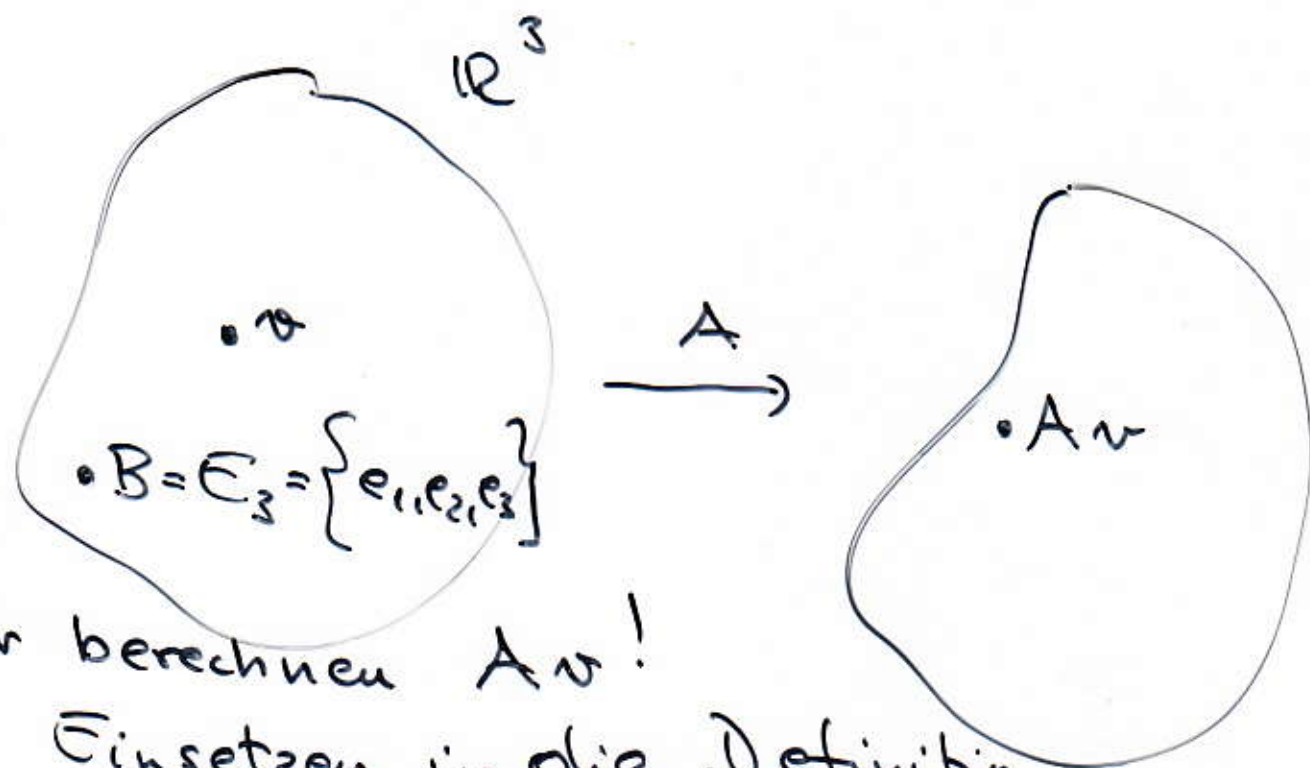 ℝ³
• v
A
• A v
• B = E₃ = {e₁, e₂, e₃}
berechnen A v !
Einsetzen in die Definition